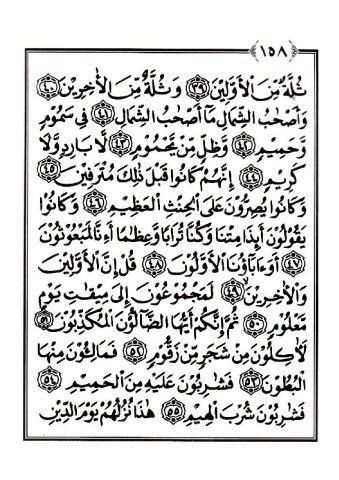 ١٥٨
ثُلَّةٌ مِّنَ الْأَوَّلِينَ ﴿٣٩﴾ وَثُلَّةٌ مِّنَ الْآخِرِينَ ﴿٤٠﴾
وَأَصْحَٰبُ الشِّمَالِ مَا أَصْحَٰبُ الشِّمَالِ ﴿٤١﴾ فِي سَمُومٍ
وَحَمِيمٍ ﴿٤٢﴾ وَظِلٍّ مِّن يَحْمُومٍ ﴿٤٣﴾ لَّا بَارِدٍ وَلَا
كَرِيمٍ ﴿٤٤﴾ إِنَّهُمْ كَانُوا قَبْلَ ذَٰلِكَ مُتْرَفِينَ ﴿٤٥﴾
وَكَانُوا يُصِرُّونَ عَلَى الْحِنثِ الْعَظِيمِ ﴿٤٦﴾ وَكَانُوا
يَقُولُونَ أَئِذَا مِتْنَا وَكُنَّا تُرَابًا وَعِظَٰمًا أَءِنَّا لَمَبْعُوثُونَ
﴿٤٧﴾ أَوَءَابَآؤُنَا الْأَوَّلُونَ ﴿٤٨﴾ قُلْ إِنَّ الْأَوَّلِينَ
وَالْآخِرِينَ ﴿٤٩﴾ لَمَجْمُوعُونَ إِلَىٰ مِيقَٰتِ يَوْمٍ
مَّعْلُومٍ ﴿٥٠﴾ ثُمَّ إِنَّكُمْ أَيُّهَا الضَّآلُّونَ الْمُكَذِّبُونَ ﴿٥١﴾
لَآكِلُونَ مِن شَجَرٍ مِّن زَقُّومٍ ﴿٥٢﴾ فَمَالِئُونَ مِنْهَا
الْبُطُونَ ﴿٥٣﴾ فَشَٰرِبُونَ عَلَيْهِ مِنَ الْحَمِيمِ ﴿٥٤﴾
فَشَٰرِبُونَ شُرْبَ الْهِيمِ ﴿٥٥﴾ هَٰذَا نُزُلُهُمْ يَوْمَ الدِّينِ